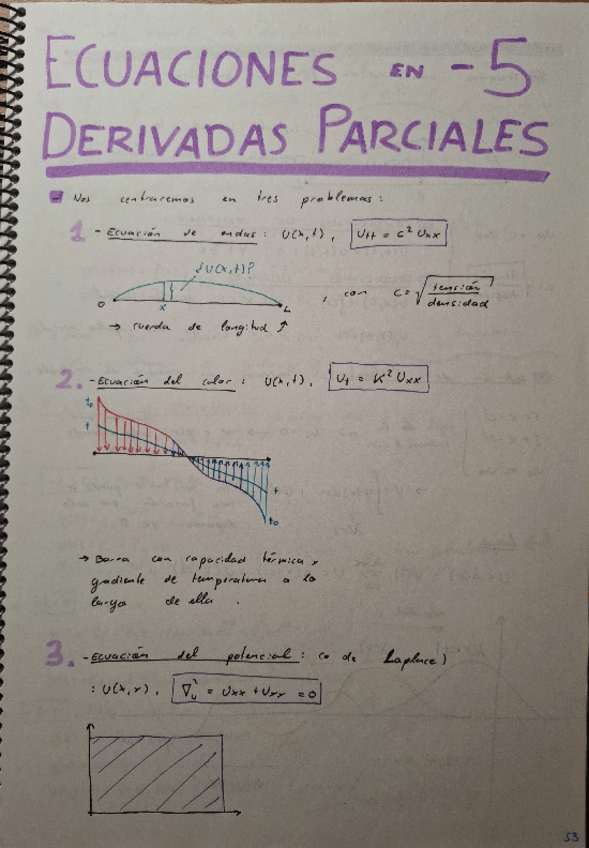 ECUACIONES EN - 5
DERIVADAS PARCIALES
- Nos centraremos en tres problemas:
1 - Ecuación de ondas: U(x,t), Utt = c² Uxx
¿U(x,t)?
0 x L , con c = √(tensión/densidad)
→ cuerda de longitud ↗
2. - Ecuación del calor: U(x,t), Ut = K² Uxx
t₀
t
t
t₀
→ Barra con capacidad térmica y
gradiente de temperatura a lo
largo de ella.
3. - Ecuación del potencial: (o de Laplace)
: U(x,y), ∇²u = Uxx + Uyy = 0
53